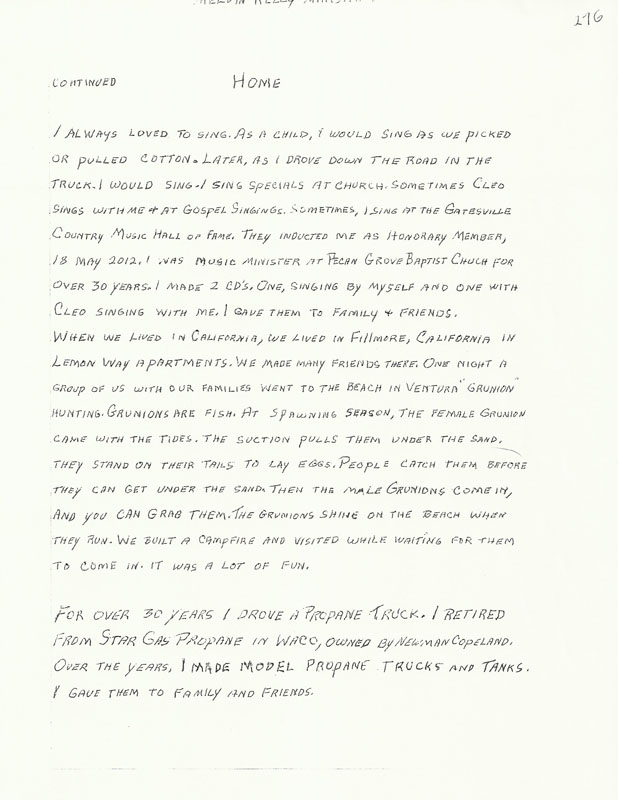 276
CONTINUED HOME
I ALWAYS LOVED TO SING. AS A CHILD, I WOULD SING AS WE PICKED
OR PULLED COTTON. LATER, AS I DROVE DOWN THE ROAD IN THE
TRUCK. I WOULD SING. I SING SPECIALS AT CHURCH. SOMETIMES CLEO
SINGS WITH ME & AT GOSPEL SINGINGS. SOMETIMES, I SING AT THE GATESVILLE
COUNTRY MUSIC HALL OF FAME. THEY INDUCTED ME AS HONORARY MEMBER,
18 MAY 2012. I WAS MUSIC MINISTER AT PECAN GROVE BAPTIST CHUCH FOR
OVER 30 YEARS. I MADE 2 CD'S. ONE, SINGING BY MYSELF AND ONE WITH
CLEO SINGING WITH ME. I GAVE THEM TO FAMILY & FRIENDS.
WHEN WE LIVED IN CALIFORNIA, WE LIVED IN FILLMORE, CALIFORNIA IN
LEMON WAY APARTMENTS. WE MADE MANY FRIENDS THERE. ONE NIGHT A
GROUP OF US WITH OUR FAMILIES WENT TO THE BEACH IN VENTURA "GRUNION"
HUNTING. GRUNIONS ARE FISH. AT SPAWNING SEASON, THE FEMALE GRUNION
CAME WITH THE TIDES. THE SUCTION PULLS THEM UNDER THE SAND.
THEY STAND ON THEIR TAILS TO LAY EGGS. PEOPLE CATCH THEM BEFORE
THEY CAN GET UNDER THE SAND. THEN THE MALE GRUNIONS COME IN,
AND YOU CAN GRAB THEM. THE GRUNIONS SHINE ON THE BEACH WHEN
THEY RUN. WE BUILT A CAMPFIRE AND VISITED WHILE WAITING FOR THEM
TO COME IN. IT WAS A LOT OF FUN.
FOR OVER 30 YEARS I DROVE A PROPANE TRUCK. I RETIRED
FROM STAR GAS PROPANE IN WACO, OWNED BY NEWMAN COPELAND.
OVER THE YEARS, I MADE MODEL PROPANE TRUCKS AND TANKS.
I GAVE THEM TO FAMILY AND FRIENDS.